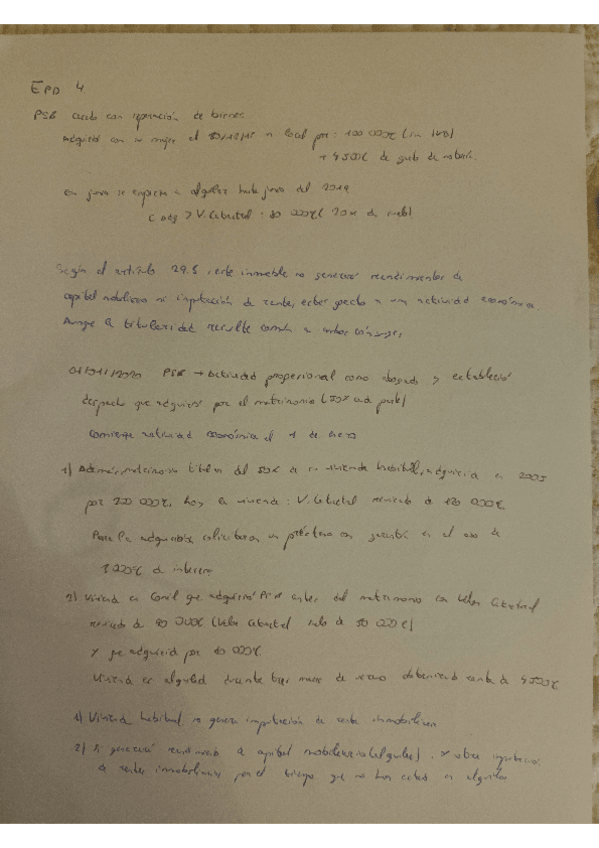 EPD 4
PSB casado con separación de bienes
Adquirió con su mujer el local por: 100 000€ (sin IVA)
+ 4500€ de gastos de notaría.
En junio se empieza a alquilar hasta junio del 2019
C adq > V. Catastral: 80 000€ (20% de suelo)
Según el artículo 29.3, este inmueble no generará rendimientos de
capital mobiliario ni imputación de rentas, estar afecto a una actividad económica.
Aunque la titularidad resulte común a ambos cónyuges.
01/01/2020 PSB → Actividad profesional como abogado y estableció
despacho que adquirió por el matrimonio (50% cada parte)
Comienza actividad económica el 1 de enero
1) Además, matrimonio titular del 50% de su vivienda habitual, adquirida en 2005
por 200 000€, hoy la vivienda: V. Catastral revisado de 120 000€
Para la adquisición solicitaron un préstamo con
de intereses
2) Vivienda en Conil que adquirió antes del matrimonio con Valor Catastral
revisado de 90 000€ (Valor Catastral suelo de 50 000€)
y que adquirió por 60 000€
Vivienda es alquilada durante tres meses de verano obteniendo renta de 4500€
1) Vivienda habitual no genera imputación de renta inmobiliaria
2) Sí generará rendimiento de capital mobiliario (alquiler), y sobre imputación
de rentas inmobiliarias por el tiempo que no han estado en alquiler